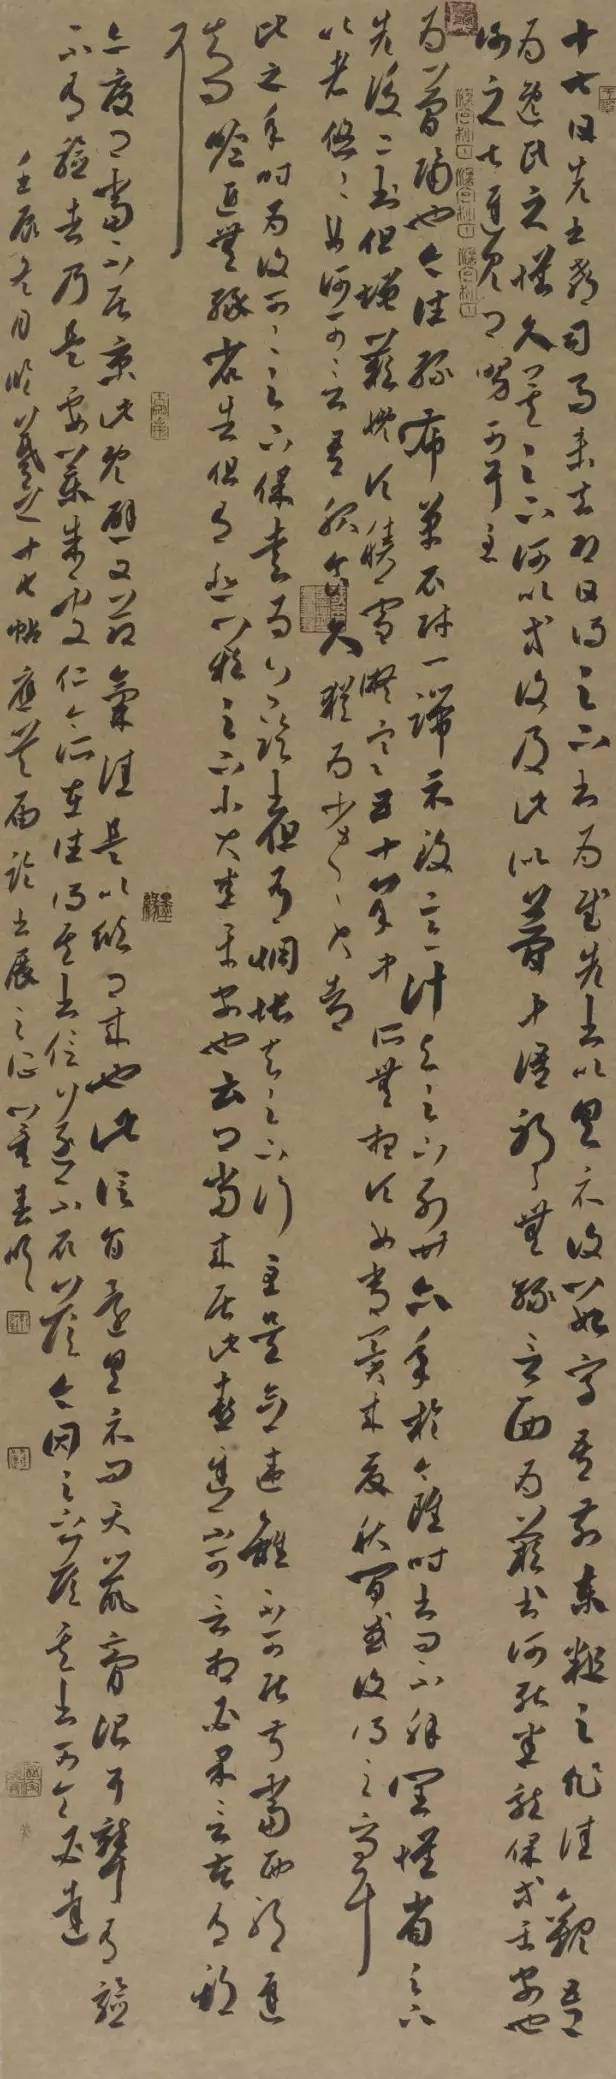 十七日先書郗司馬未去即日得足下書為慰先書以具示復數字吾前東粗足作佳觀吾
為逸民之懷久矣足下何以方復及此似夢中語耶無緣言面為歎書何能悉龍保等平安也
謝之甚遲見卿舅可耳至
為簡隔也今往絲布單衣財一端示致意計與足下別廿六年於今雖時書問不解闊懷省足下
先後二書但增歎慨頃積雪凝寒五十年中所無想頃如常冀來夏秋間或復得足下問耳
比者悠悠如何可言吾服食久猶為劣劣大都
比之年時為復可可足下保愛為上臨書但有惆悵知足下行至吳念違離不可居叔當西耶遲
知問瞻近無緣省告但有悲歎足下小大悉平安也云卿當來居此喜遲不可言想必果言苦有期
耳
亦度卿當不居京此既避又節氣佳是以欣卿來也此信旨還具示問天鼠膏治耳聾有驗
不有驗者乃是要藥朱處仁今所在往得其書信遂不取答今因足下答其書可令必達
壬辰冬月臨羲之十七帖應 論書展之